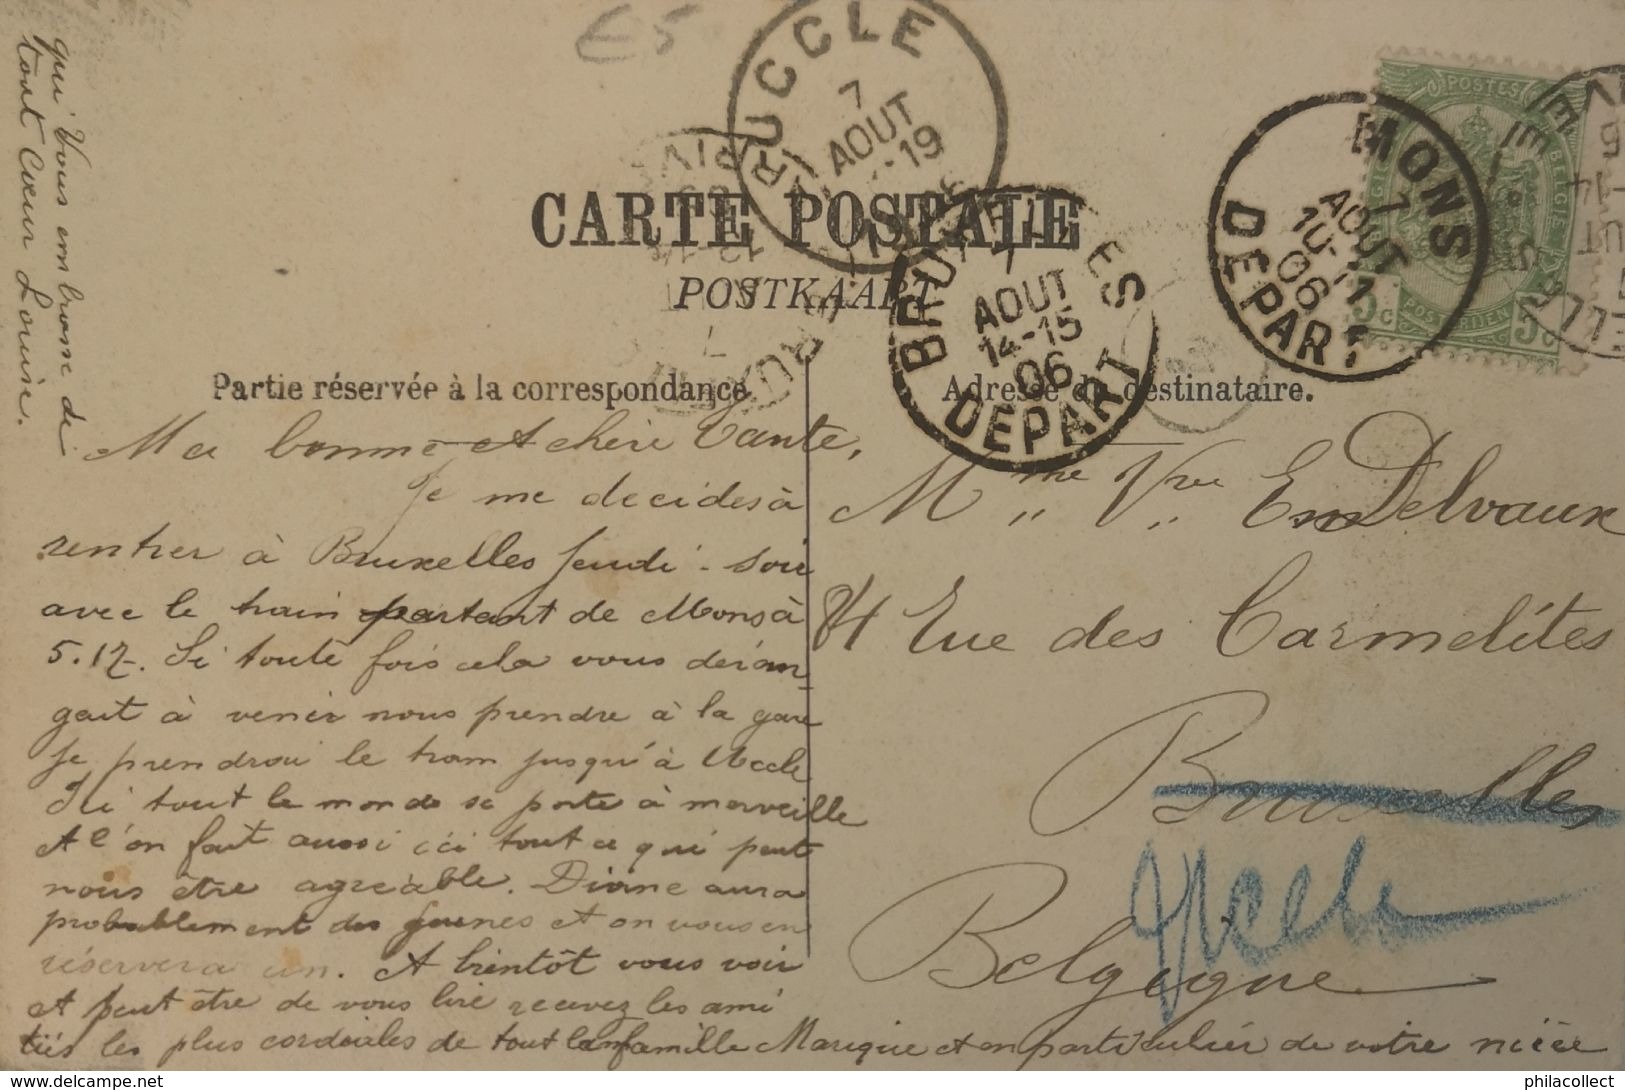 E5
UCCLE
7
AOUT
-19
CARTE POSTALE
POSTKAART
BRUXELLES
7
AOUT
14-15
06
DEPART
MONS
7
AOUT
10-11
06
DEPART
POSTES
BELGIE
POSTERIJEN
5c 5c
Partie réservée à la correspondance.
Adresse du destinataire.
Ma bonne et chère Tante,
Je me decides à
rentrer à Bruxelles Jeudi-soir
avec le train partant de Mons à
5.17. Si toute fois cela vous déran-
geait à venir nous prendre à la gare
je prendrai le tram jusqu'à Uccle
Ici tout le monde se porte à merveille
et l'on fait aussi ici tout ce qui peut
nous être agréable. Diane aura
probablement des jeunes et on vous en
réservera un. A bientôt vous voir
et peut être de vous lire recevez les ami
tiés les plus cordiales de toute la famille Marique et en particulier de votre nièce
qui Vous embrasse de
tout Cœur Louise.
Mme Vve Em Delvaux
84 Rue des Carmelites
Bruxelles
Uccle
Belgique
philacollect philacollect.com